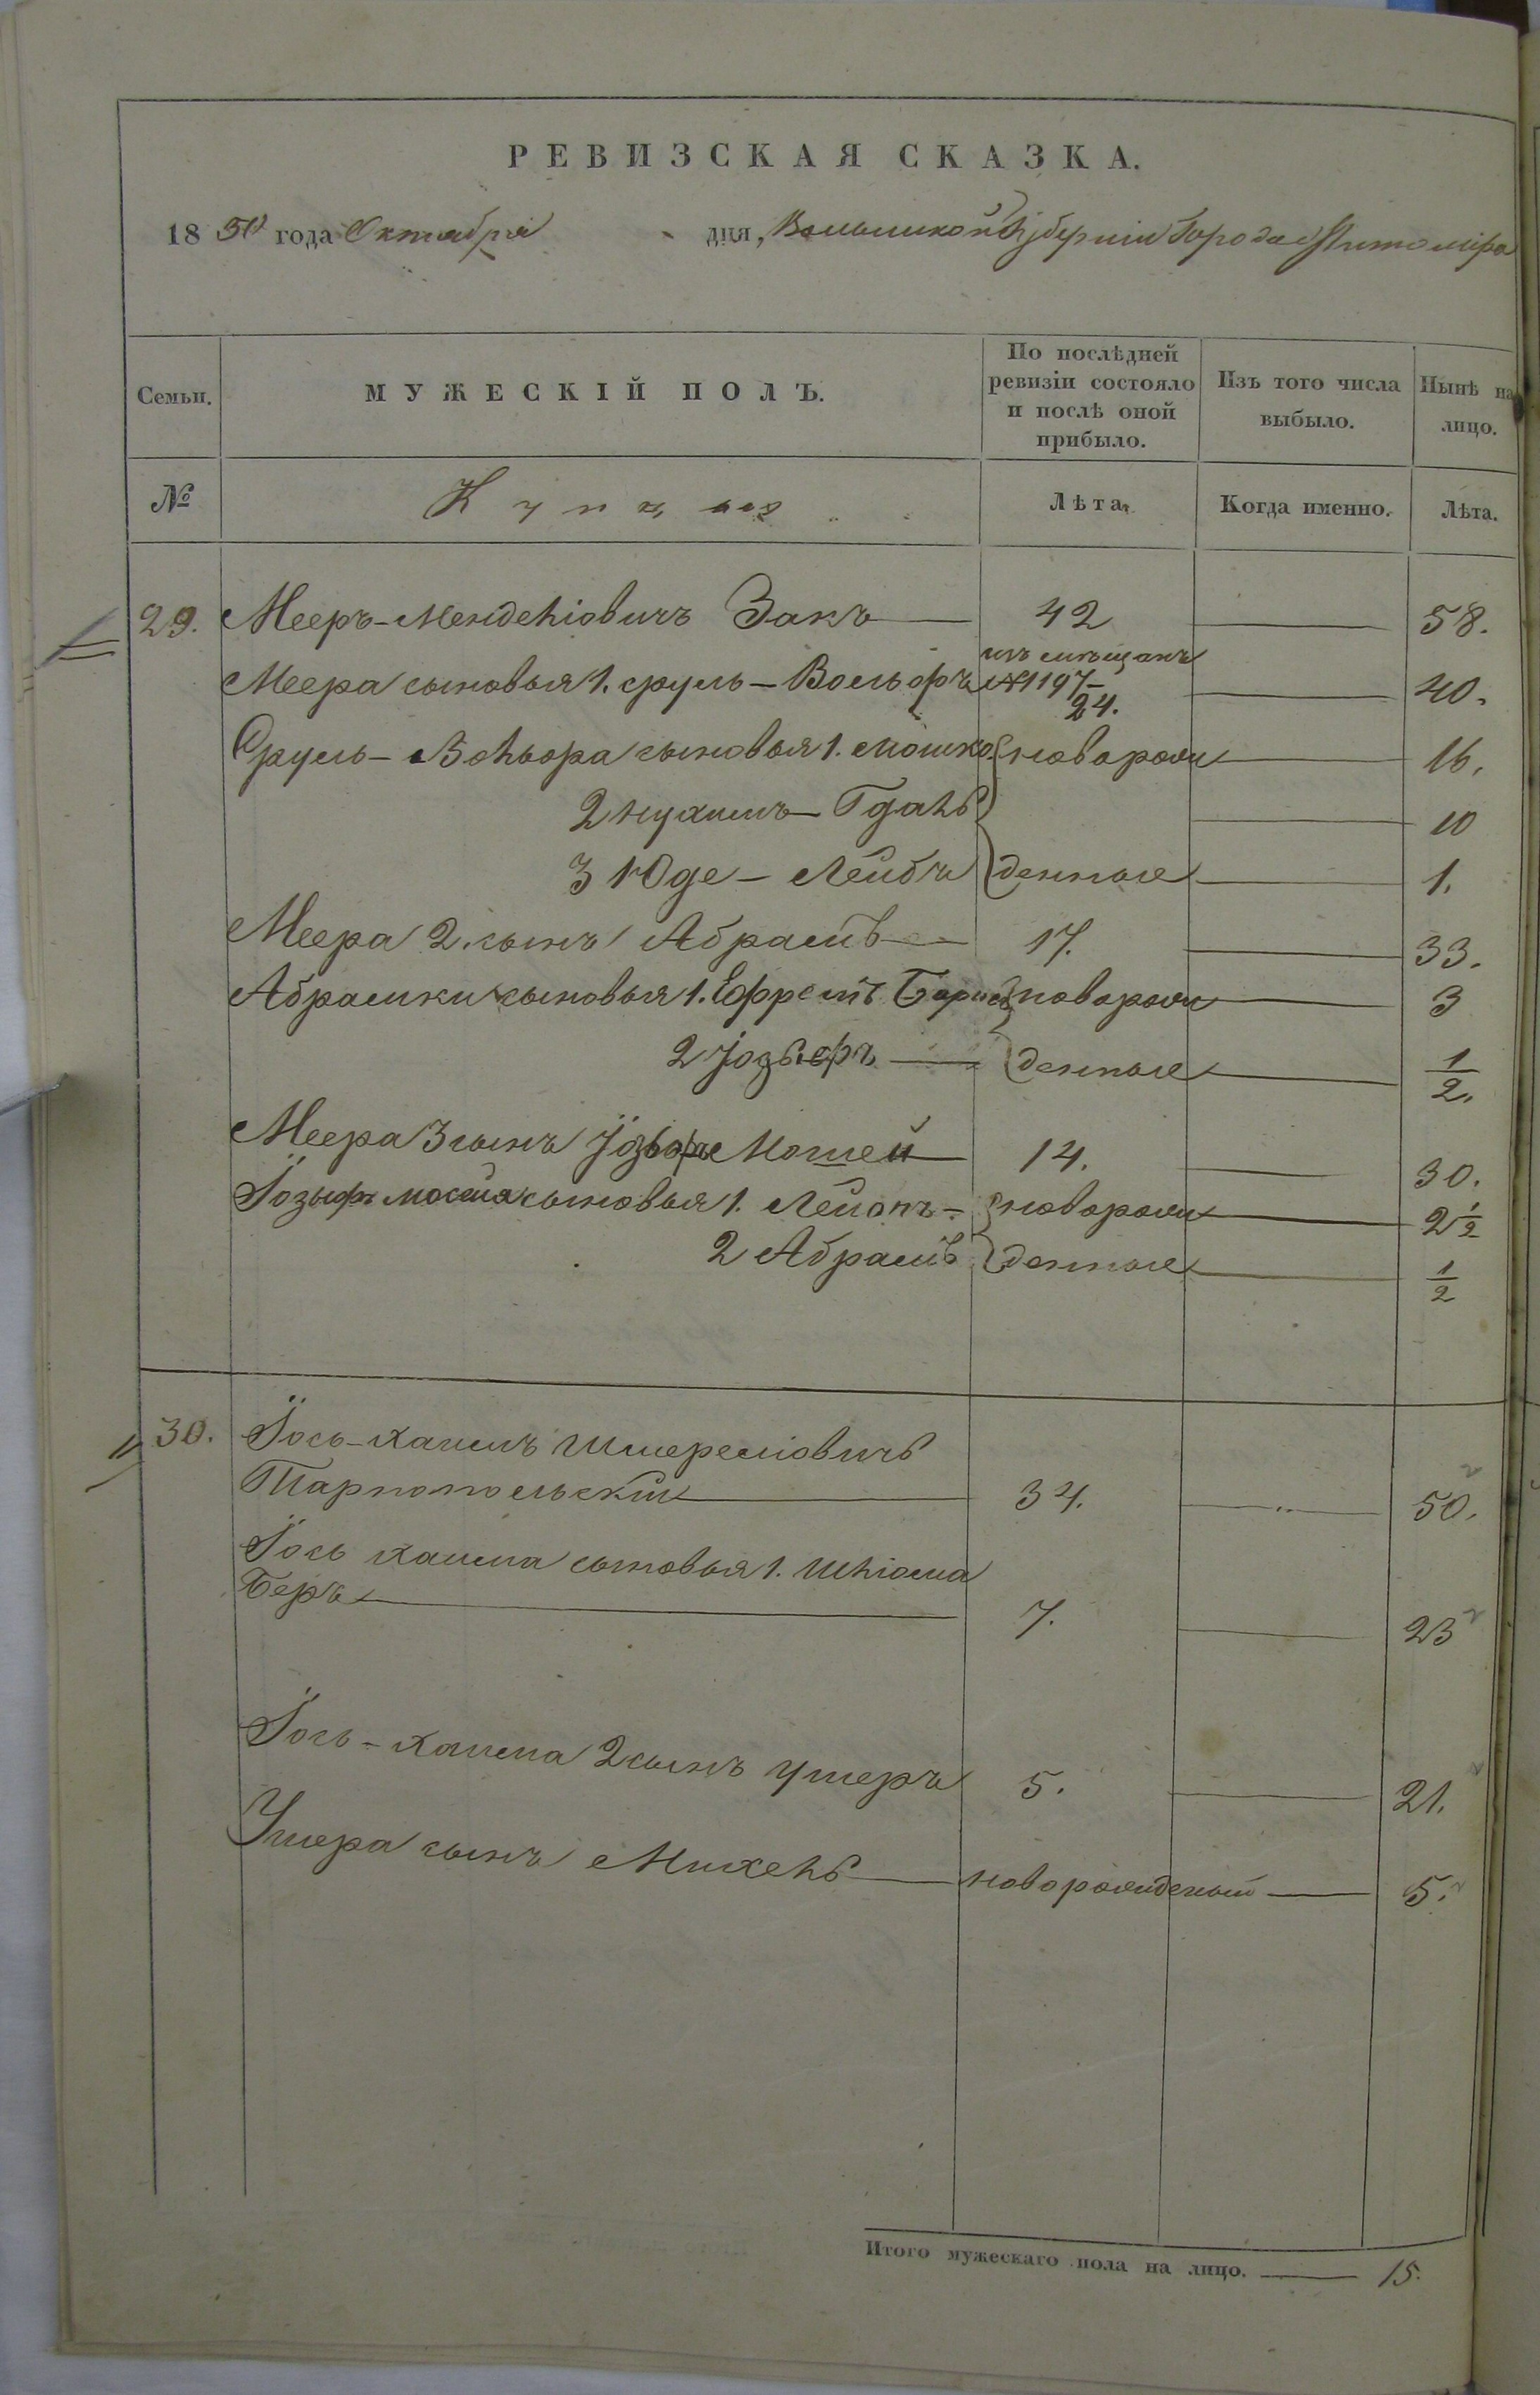 РЕВИЗСКАЯ СКАЗКА.
18 50 года Октября дня, Волынской Губерніи Города Житоміра
Семьи. МУЖЕСКІЙ ПОЛЪ. По послѣдней ревизіи состояло и послѣ оной прибыло. Изъ того числа выбыло. Нынѣ на лицо.
№ Купцы Лѣта. Когда именно. Лѣта.
29. Мееръ-Менделіовичъ Закъ 42 58.
изъ мѣщанъ
Меера сыновья 1. сруль-Вольфъ №1197 24. 40.
Сруль-Вольфа сыновья 1. мошко новорож 16.
2 нухимъ-Гдаль 10
3 Юде-Лейбъ денные 1.
Меера 2. сынъ Абрамъ 17. 33.
Абрамки сыновья 1. Ефремъ новорож 3
2 Іозьфъ денные 1/2.
Меера 3 сынъ Мошей 14. 30.
Іозьфъ сыновья 1. новорож 2 1/2
2 Абрамъ денные 1/2
30. Іось-хаимъ Шмереліовичъ
Тарнопольскій 34. 50.
Іось хаима сыновья 1. Шліома
Беръ 7. 23
Іось-хаима 2 сынъ Ушеръ 5. 21.
Ушера сынъ Михель новорожденый 5.
Итого мужескаго пола на лицо. 15.